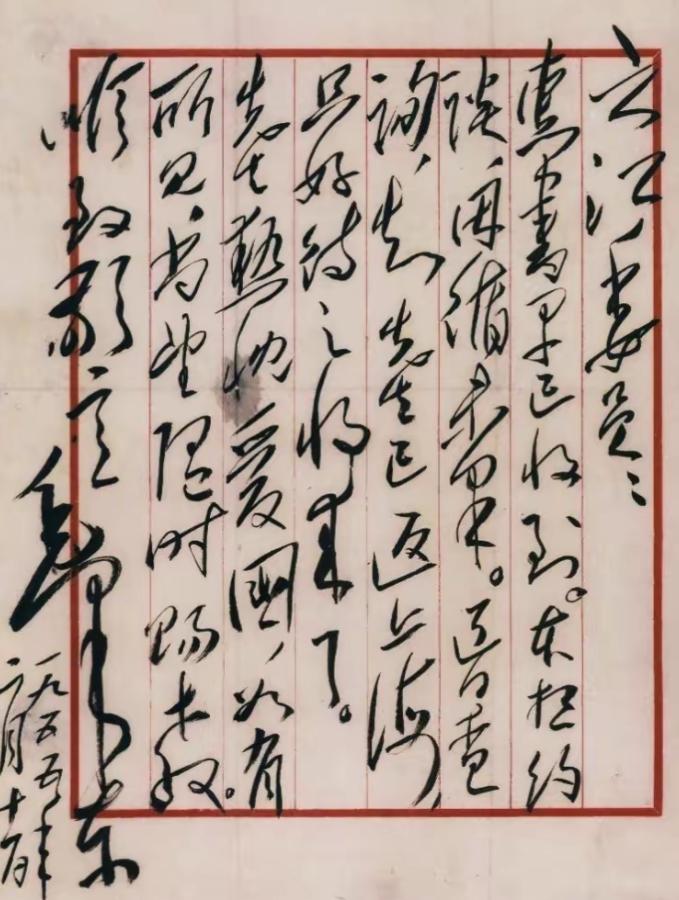 江委員：
惠書早已收到。本拟约
谈，因循未果。近日查
询，知先生已返上海，
只好待之将来了。
先生熱忱爱國，如有
所见，尚望随时赐教。
顺致敬意
毛泽东
一九五五年
二月十日